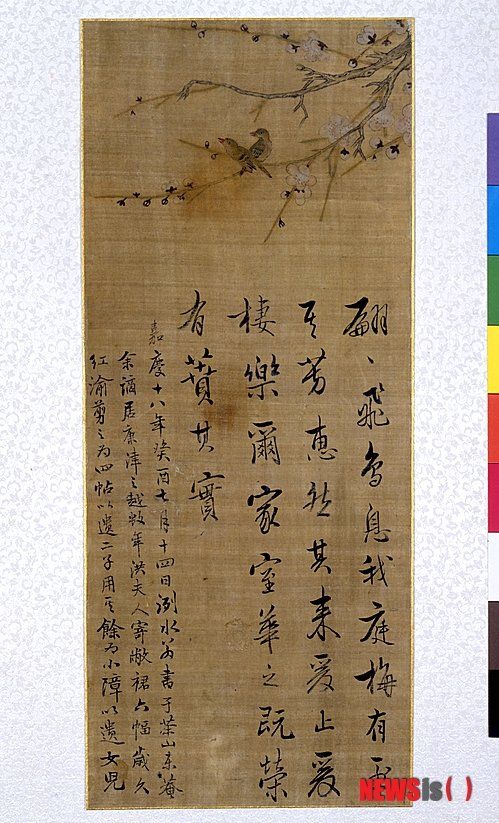 翩〻飛鳥息我庭梅有烈
其芳惠然其來爰止爰
棲樂爾家室華之旣榮
有蕡其實
嘉慶十八年癸酉七月十四日洌水翁書于茶山東菴
余謫居康津之越數年洪夫人寄敝裙六幅歲久
紅渝剪之爲四帖以遺二子用其餘爲小障以遺女兒
NEWSis( )